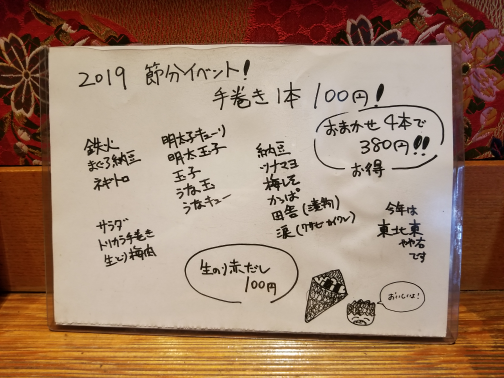 2019 節分イベント!
手巻き1本 100円!
おまかせ 4本で
380円!!
お得
鉄火
まぐろ納豆
ネギトロ
サラダ
トリカラ手巻き
生とり梅肉
明太子キューリ
明太玉子
玉子
うな玉
うなキュー
納豆
ツナマヨ
梅しそ
かっぱ
田舎(漬物)
涙(ワサビカイワレ)
今年は
東北東
やや右
です
生のり赤だし
100円
おいしいよ!